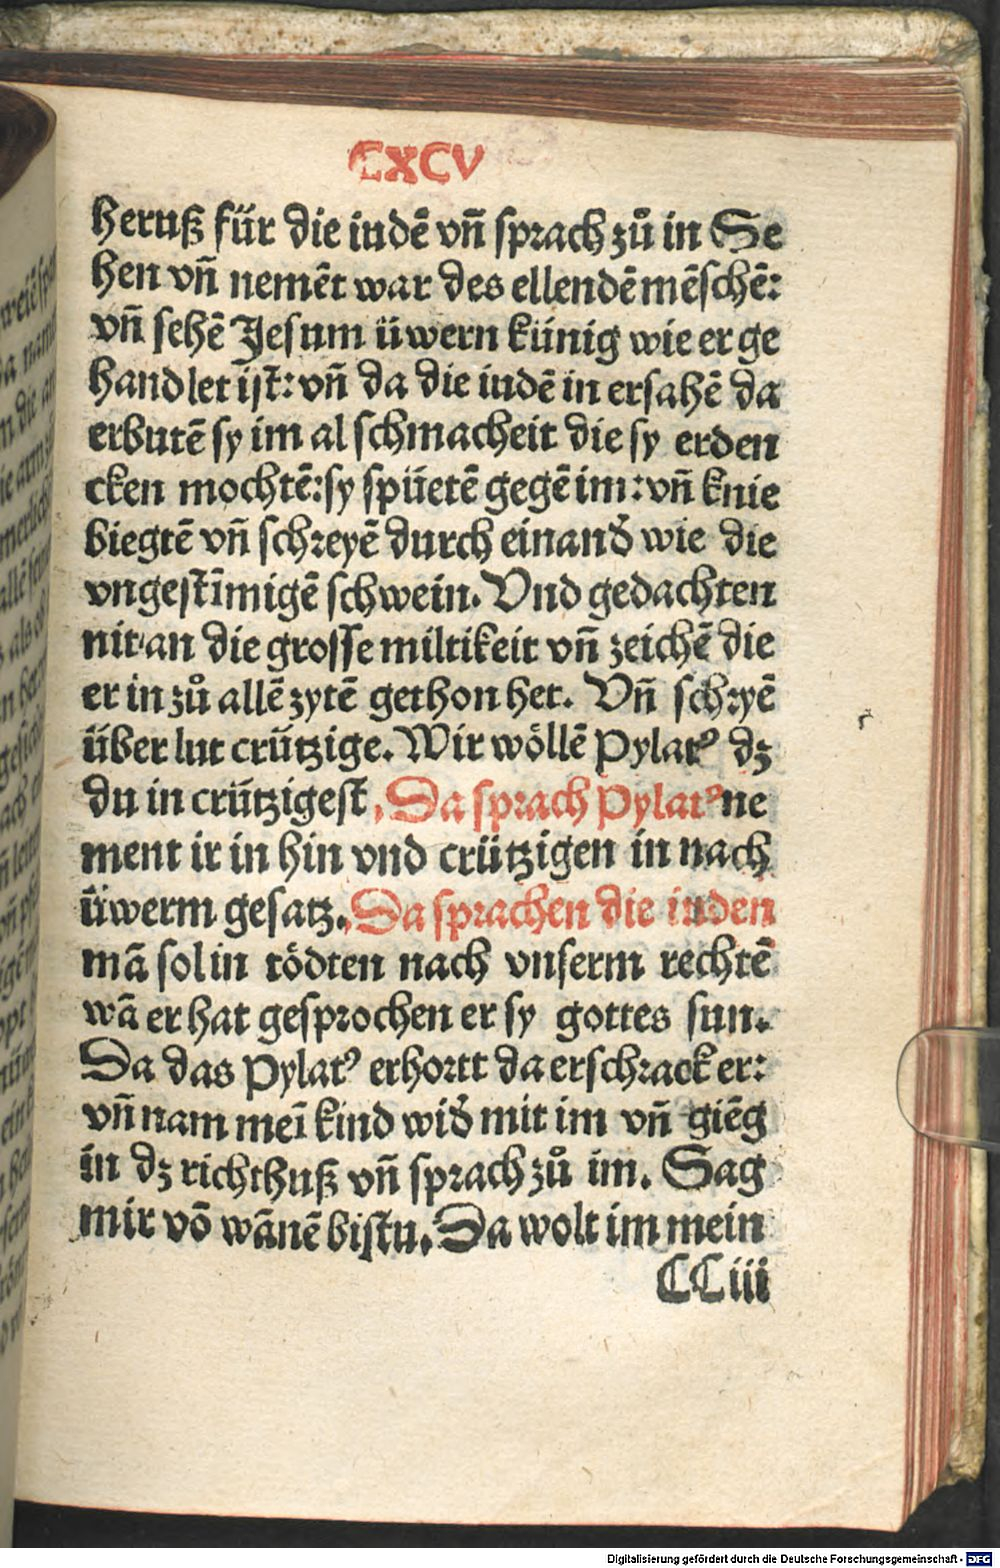 CXCV
heruß für die iudē vn̄ sprach zů in Se
hen vn̄ nemēt war des ellendē mēschē:
vn̄ sehē Jesum üwern künig wie er ge
handlet ist: vn̄ da die iudē in ersahē da
erbutē sy im al schmacheit die sy erden
cken mochtē: sy spüetē gegē im: vn̄ knie
biegtē vn̄ schreyē durch einand̛ wie die
vngestīmigē schwein. Vnd gedachten
nit an die grosse miltikeit vn̄ zeichē die
er in zů allē zytē gethon het. Vn̄ schryē
über lut crützige. Wir wöllē Pylatꝰ dz
du in crützigest. Da sprach Pylatꝰ ne
ment ir in hin vnd crützigen in nach
üwerm gesatz. Da sprachen die iuden
mā sol in tödten nach vnserm rechtē
wā er hat gesprochen er sy gottes sun.
Da das Pylatꝰ erhortt da erschrack er:
vn̄ nam meī kind wid̛ mit im vn̄ giēg
in dz richthuß vn̄ sprach zů im. Sag
mir vō wānē bistu. Da wolt im mein
CCiii
Digitalisierung gefördert durch die Deutsche Forschungsgemeinschaft - DFG